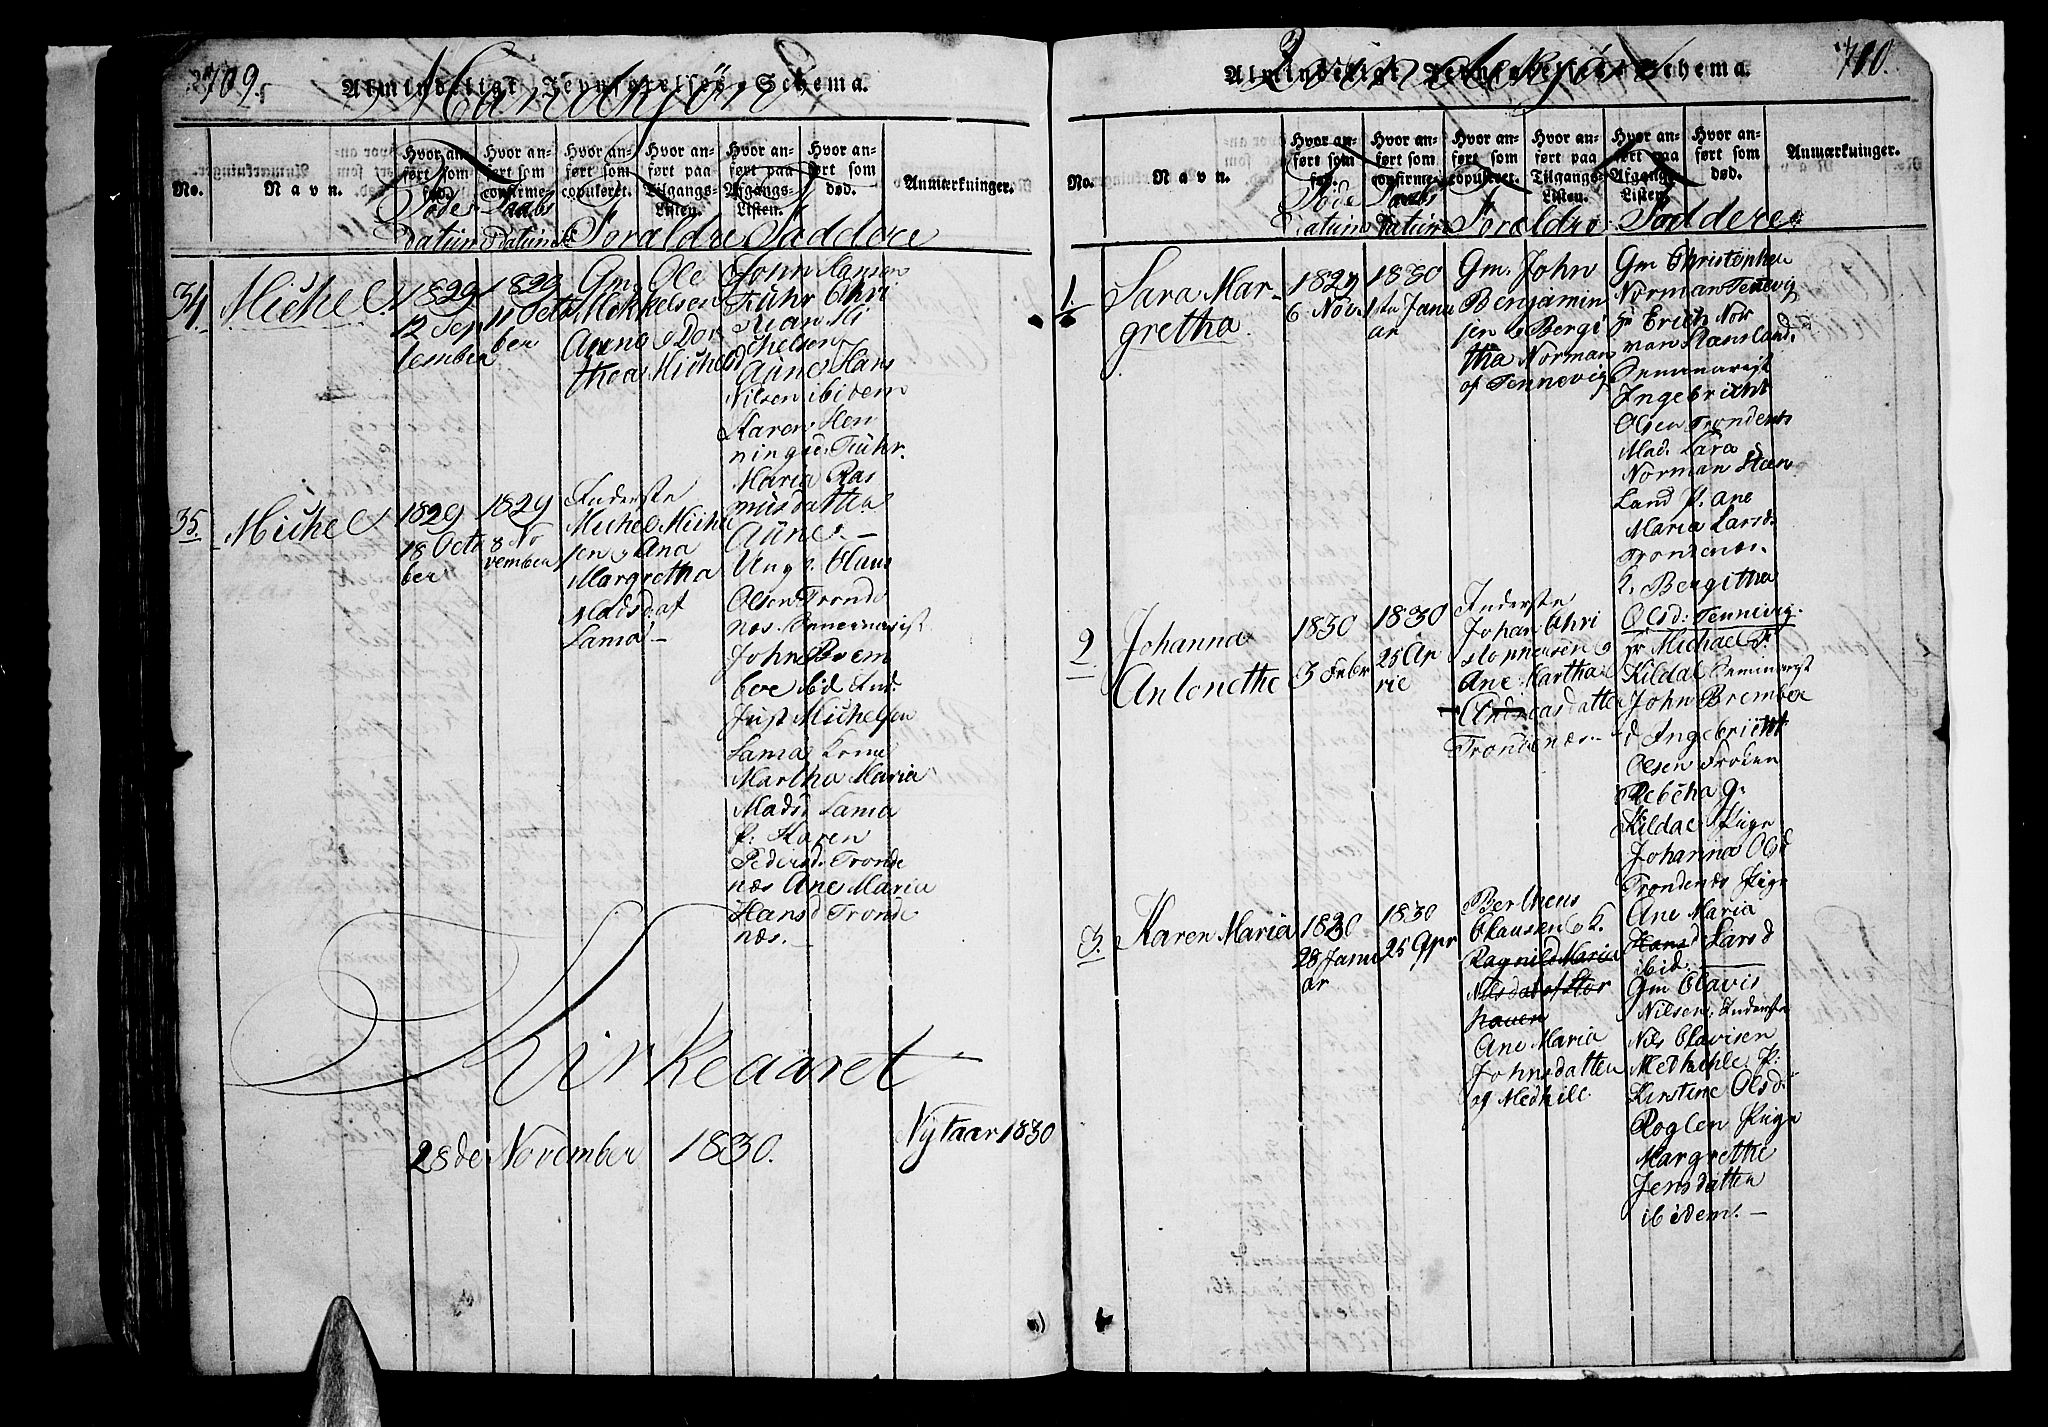 709.
Almindeligt Jevnførelses-Schema.
Mandkjøn
No.
Navn.
Hvor anført som fød.
Hvor anført som confirmeret.
Hvor anført som copuleret.
Hvor anført paa Tilgangs-Listen.
Hvor anført paa Afgangs-Listen.
Hvor anført som død.
Anmærkninger.
Føde-
datum
Daabs
Datum
Foraldre
Faddere
34.
Michel
1829
12 Sep
tember
1829
11 Octo
ber
Gm. Ole
Mekkelsen
Aune & Dor
thea Michelsd
John Hansen
Führ Chri
stian Mi
chelsen
Aune Hans
Nilsen ibidem
Karen Hen
ningsd. Führ.
Maria Ras
musdatter
Aune. —
35.
Michel
1829
18 Octo
ber
1829
8 No
vember
Inderste
Michel Michel
sen & Ana
Margretha
Madsdat
Lama. —
Ung. Claus
Olsen Tronde
næs. Semenarist
John Brem
boe ibid Ind.
Just Michelsen
Lama Kone
Martha Maria
Madsd Lama
P: Karen
Pedersd. Tronde
næs Ane Maria
Hansd Tronde
næs. —
Kirkeaaret
28de November 1830.
Nytaar 1830
710.
Almindeligt Jevnførelses-Schema.
Qvindekjøn
No.
Navn.
Hvor anført som fød.
Hvor anført som confirmeret.
Hvor anført som copuleret.
Hvor anført paa Tilgangs-Listen.
Hvor anført paa Afgangs-Listen.
Hvor anført som død.
Anmærkninger.
Føde
Datum
Daabs
Datum
Foraldre
Faddere
1.
Sara Mar-
gretha
1829
6 Nov.
1830
1ste Janu
ar
Gm. John
Benjamin
sen & Bergi
tha Norman
of Tennevig
Gm Christopher
Norman Tennevig
Hr Erich Nor
man Stansland.
Semenarist
Ingebricht
Olsen Trondenæs
Mad. Sara
Norman Stan
land P. Ane
Maria Larsd.
Trondenæs.
K. Bergitha
Olsd: Tennevig.
2
Johanna
Antonethe
1830
3 Febr
1830
25 Ap
ril
Inderste
Johan Chri
stophersen &
Ane Martha
Andreasdatter
Trondenæs. —
Hr Michael F.
Kildal Seminarist
John Bremboe
& Ingebricht
Olsen Tronden
Rebecha G.
Kildal Pige
Johanna Olsd
Trondenæs Pige
Ane Maria
Hansd Larsd
ibid. —
3.
Karen Maria
1830
28 Janu
ar
1830
25 Apr
Berthens
Clausen & K.
Ragnild Maria
Nilsdat of Stor
hauen
Ane Maria
Johnsdatter
of Medkile
Gm Clavis
Nilsen; Inderste
Nils Clavisen
Medkihle P:
Kirstine Olsd.
Roglen Pige
Margrethe
Jensdatter
ibidem. —